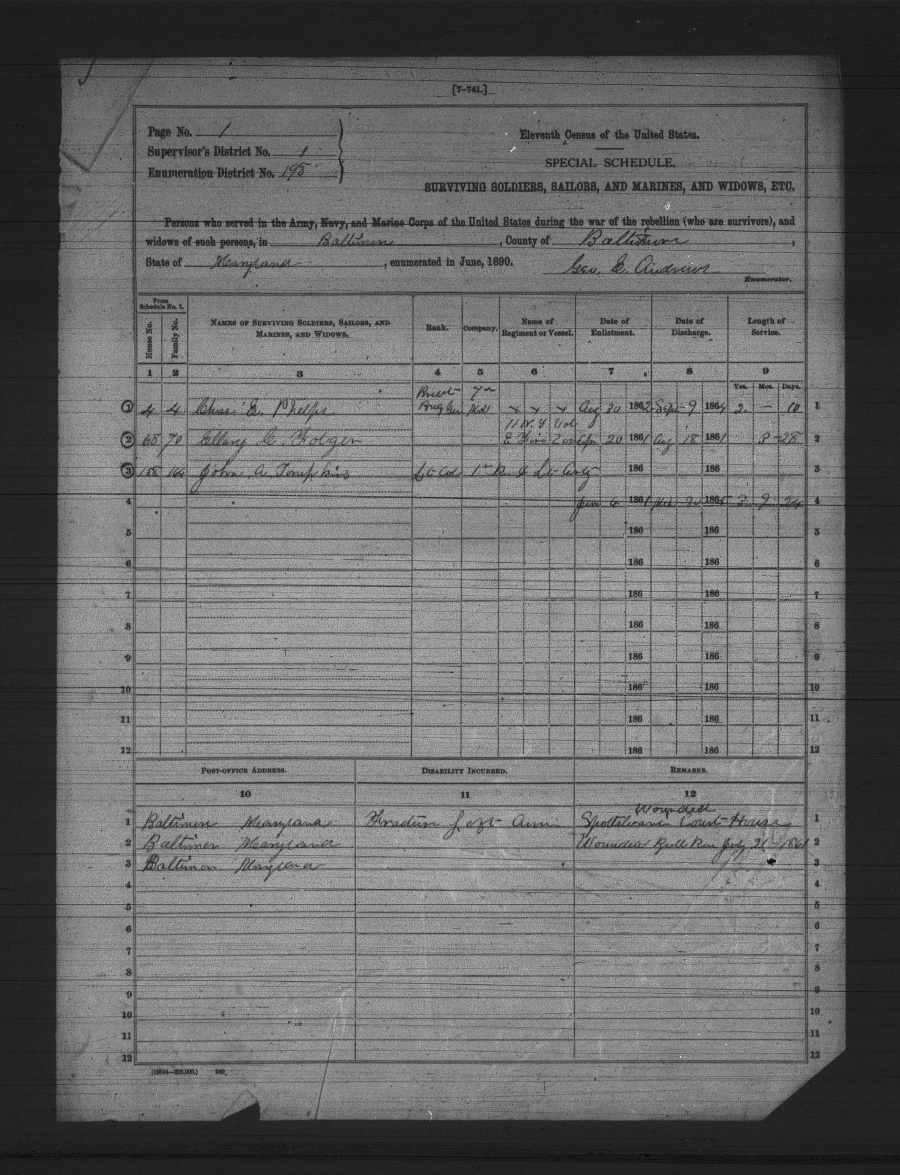 [7-741.]
Page No. 1
Supervisor's District No. 1
Enumeration District No. 195
Eleventh Census of the United States.
SPECIAL SCHEDULE.
SURVIVING SOLDIERS, SAILORS, AND MARINES, AND WIDOWS, ETC.
Persons who served in the Army, Navy, and Marine Corps of the United States during the war of the rebellion (who are survivors), and
widows of such persons, in Baltimore, County of Baltimore,
State of Maryland, enumerated in June, 1890. Geo. E. Andrews
Enumerator.
From Schedule No. 1.
House No. Family No. NAMES OF SURVIVING SOLDIERS, SAILORS, AND MARINES, AND WIDOWS. Rank. Company. Name of Regiment or Vessel. Date of Enlistment. Date of Discharge. Length of Service.
1 2 3 4 5 6 7 8 9
Yrs. Mos. Days.
Brevt 7th
1 4 4 Chas. E. Phelps Brig Gen Md x x x Aug 20 1862 Sept 9 1864 2 — 10 1
11 N.Y Vol
2 68 70 Ellery C. Folger E Fire 20 1861 Aug 18 1861 3 28 2
3 158 166 John A. Tompkins Lt Col 1st R. I Lt Arty 186 186 3
4 Jun 6 1861 20 1865 3 9 24 4
5 186 186 5
6 186 186 6
7 186 186 7
8 186 186 8
9 186 186 9
10 186 186 10
11 186 186 11
12 186 186 12
POST-OFFICE ADDRESS. DISABILITY INCURRED. REMARKS.
10 11 12
Wounded
1 Baltimore Maryland Fracture left Arm Spottsylvania Court House 1
2 Baltimore Maryland Wounded Bull Run July 21 - 1861 2
3 Baltimore Maryland 3
4 4
5 5
6 6
7 7
8 8
9 9
10 10
11 11
12 12